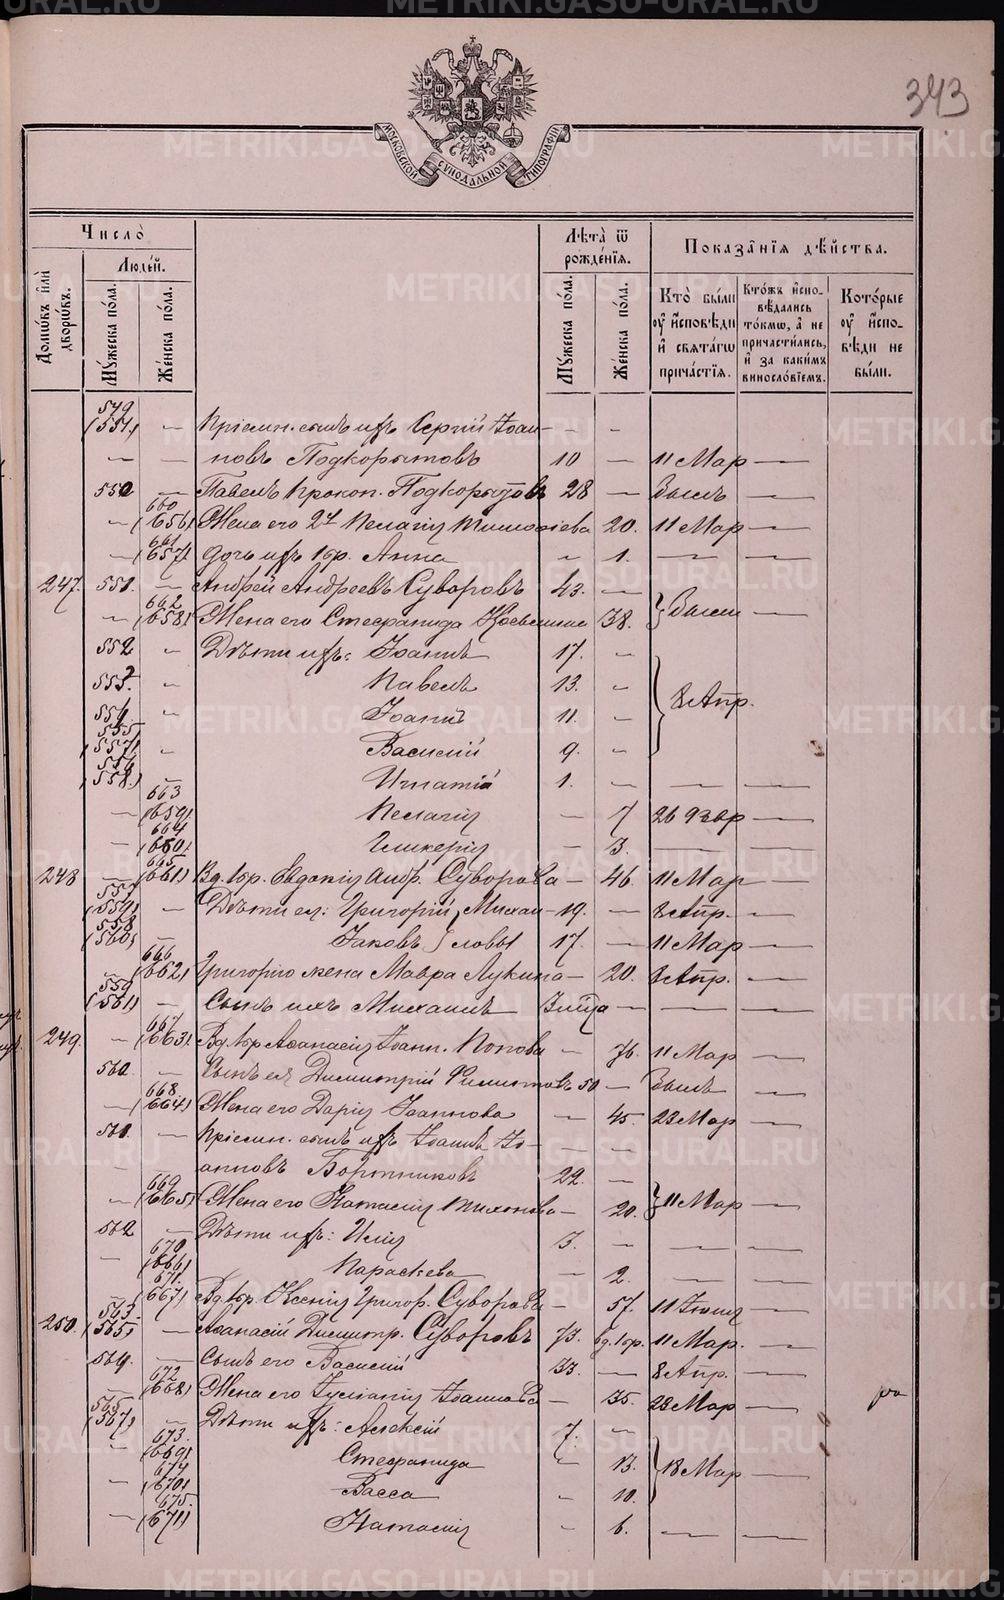 343
МОСКОВСКОЙ СѴНОДАЛЬНОЙ ТИПОГРАФІИ
Число̀
Людей.
Домѡвъ и҆лѝ дворѡвъ.
Мꙋ́жеска по́ла.
Же́нска по́ла.
Лѣ́та ѿ рожде́нїѧ.
Мꙋ́жеска по́ла.
Же́нска по́ла.
Показа́нїѧ дѣ́йства.
Кто̀ бы́ли ᲂу҆ и҆́сповѣди и҆ свѧта́гѡ прича́стїѧ.
Кто́жъ и҆спо-вѣ́дались то́кмѡ, а҆ не причасти́лись, и҆ за каки́мъ винослові́емъ.
Кото́рые ᲂу҆ и҆́спо-вѣди не бы́ли.
549 (551) — Пріемн. сынъ ихъ Сергій Іоан- — —
— — новъ Подкорытовъ 10 — 11 Мар —
550 — Павелъ Прокоп. Подкорытовъ 28 — Былъ —
— 660 (656) Жена его 2я Пелагія Тимоѳіева 20. 11 Мар —
— 661 (657) Дочь ихъ 1 бр. Анна — 1. — —
247. 551. — Андрей Андреевъ Суворовъ 43. —
— 662 (658) Жена его Стефанида 38. } Были —
552 — Дѣти ихъ: Іоаннъ 17. —
553. — Павелъ 13. —
554 — Іоаннъ 11. — } 8 Апр.
555 (557) — Василій 9. —
556 (558) — Игнатій 1. — — —
— 663 (659) Пелагія — 7 26 Февр —
— 664 (660) Гликерія — 3. — —
248 — 665 (661) Вд. бр. Евдокія Андр. Суворова — 46. 11 Мар —
557 (559) — Дѣти ея: Григорій } Михаи- 19. — 8 Апр. —
558 (560) — Іаковъ } ловы 17. — 11 Мар —
— 666 (662) Григорію жена Мавра Лукина — 20. 8 Апр. —
559 (561) — Сынъ ихъ Михаилъ — — —
249. — 667 (663) Вд. бр Аѳанасія Іоанн. Попова — 76. 11 Мар —
560. — Сынъ ея Димитрій Филиповъ 50 — Былъ —
— 668 (664) Жена его Дарія Іоаннова — 45. 22 Мар —
561. — Пріемн. сынъ ихъ Іоаннъ Іо- — —
— — анновъ Бортниковъ 22. —
— 669 (665) Жена его Наталія Тихонова — 20. } 11 Мар —
562 — Дѣти ихъ: Илія 3. — — —
— 670 (666) Параскева — 2. — —
671. (667) Вд. бр. Ксенія Григор. Суворова — 57. 11 Іюня —
250. 563. (565) — Аѳанасій Димитр. Суворовъ 73. вд. бр. 11 Мар. —
564. — Сынъ его Василій 33. — 8 Апр. —
— 672 (668) Жена его Іуліанія Іоаннова — 35. 22 Мар —
565 (567) — Дѣти ихъ: Алексій 7. —
— 673. (669) Стефанида — 13. } 18 Мар —
674 (670) Васса — 10.
— 675. (671) Наталія — 6. — —
METRIKI.GASO-URAL.RU